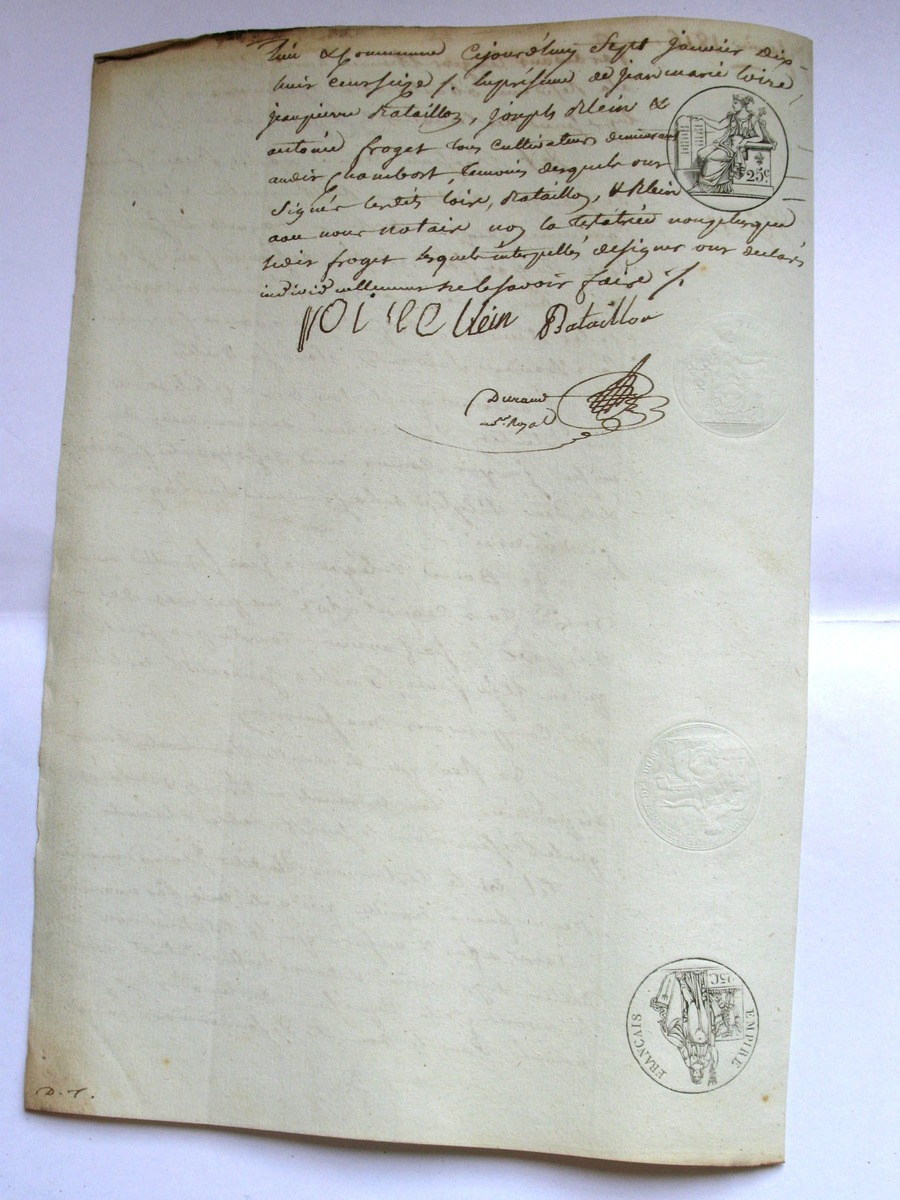 lieu & Commune Cejourd'huy Sept Janvier dix-
huit cent seize /. En présence de jean marie loire,
jean pierre Bataillon, joseph Klein &
antoine froget tous cultivateurs demeurant
audit Chambost temoins desquels ont
Signés lesdits loire, Bataillon, & Klein
avec nous notaire non la testatrice non plus que
ledit froget lesquels interpellés de signer ont declarés
individuellement ne le savoir faire /.
loire Klein Bataillon
Durand
nre. Royal
25c.
15C
EMPIRE FRANCAIS
D. T.